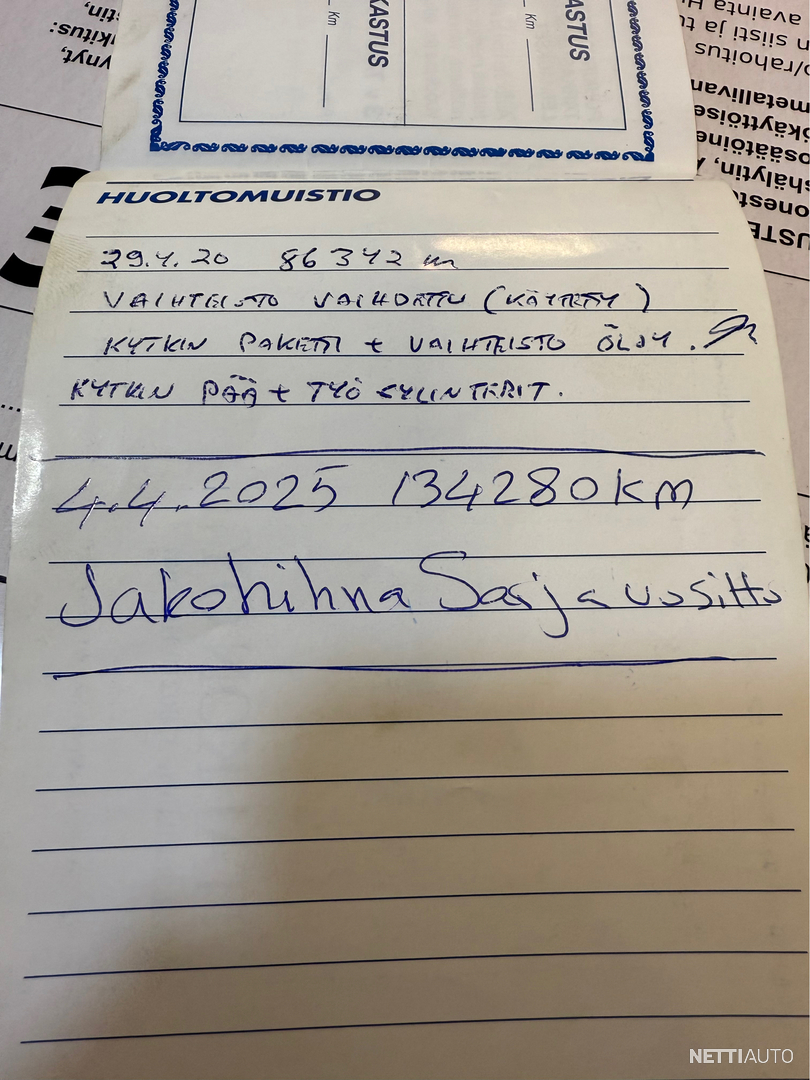 KASTUS
Km
KASTUS
Km
HUOLTOMUISTIO
29.4.20 86342
VAIHTEISTO VAIHDETTU (KÄYTETTY)
KYTKIN PAKETTI + VAIHTEISTO ÖLJY.
KYTKIN PÄÄ + TYÖ SYLINTERIT.
4.4.2025 134280KM
Jakohihna Sarja uusittu
NETTIAUTO